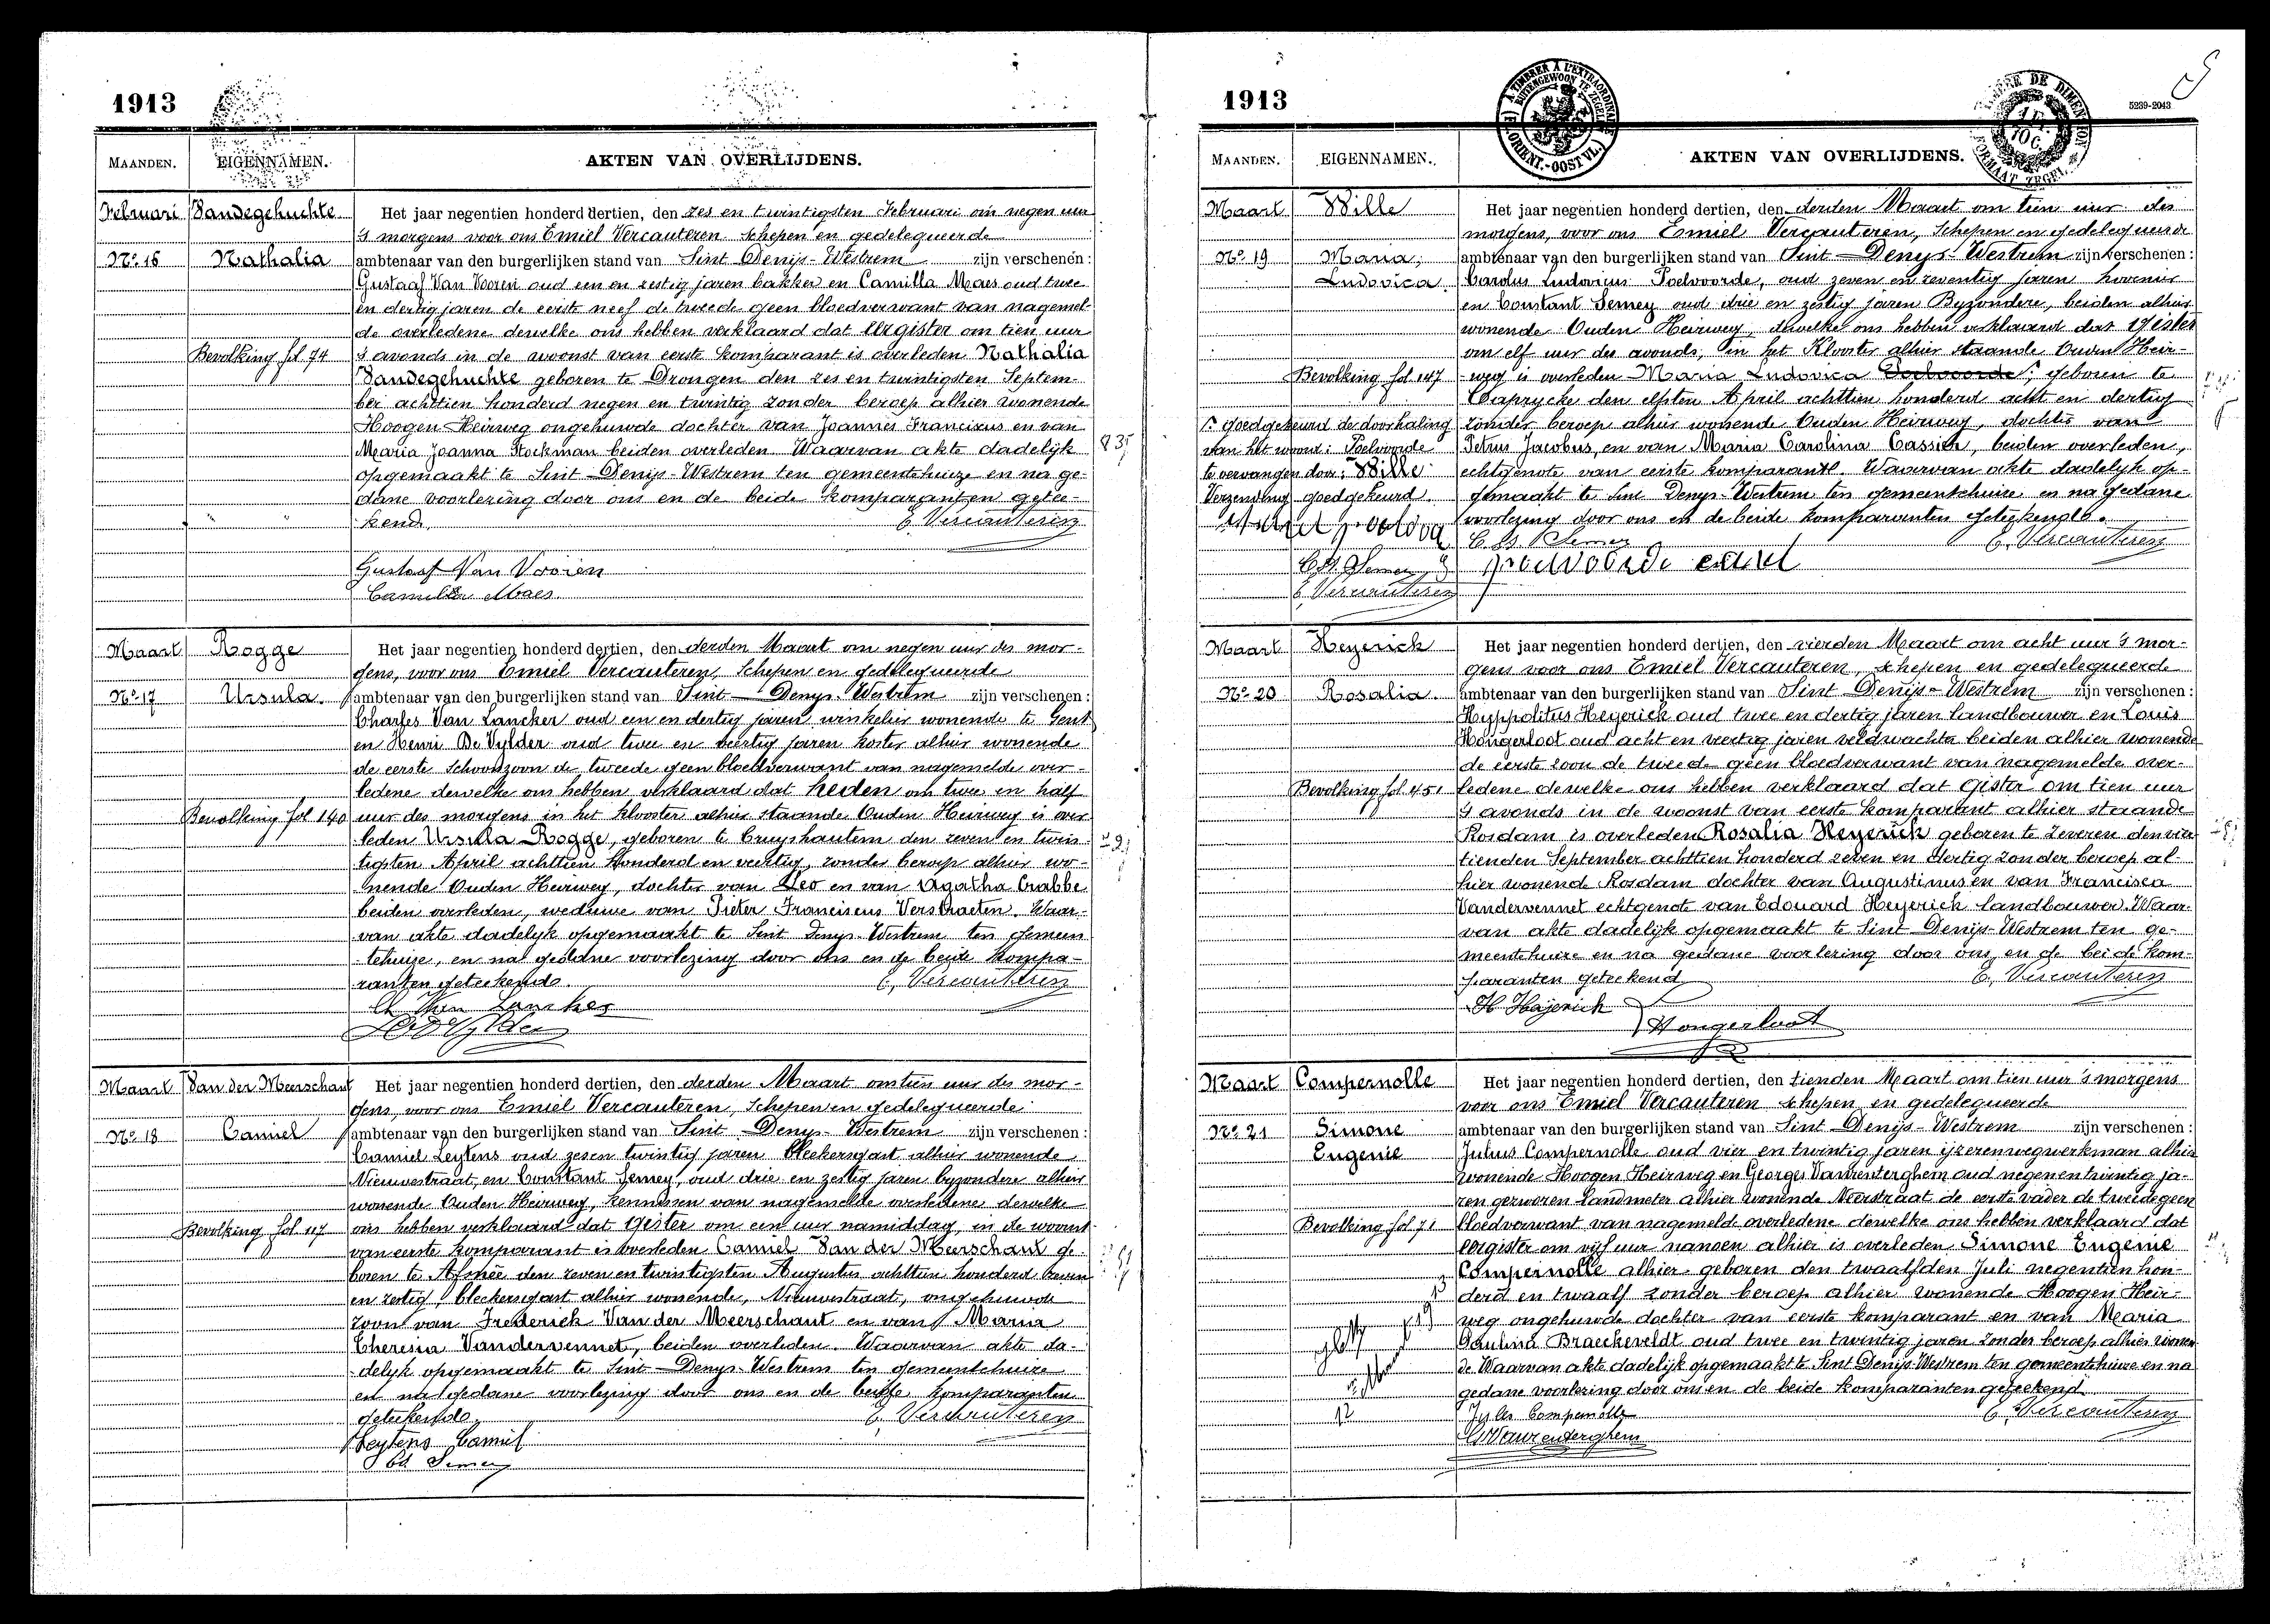 1913
MAANDEN. EIGENNAMEN. AKTEN VAN OVERLIJDENS.
Februari Vandegehuchte Het jaar negentien honderd dertien, den zes en twintigsten Februari om negen uur
's morgens voor ons Emiel Vercauteren schepen en gedelegueerde
No 16 Nathalia ambtenaar van den burgerlijken stand van Sint Denijs-Westrem zijn verschenen:
Gustaaf Van Vooren oud een en zestig jaren bakker en Camilla Maes oud twee
en dertig jaren de eerste neef de tweede geen bloedverwant van nagemel-
de overledene dewelke ons hebben verklaard dat eergister om tien uur
Bevolking fol 74 's avonds in de woonst van eerste komparant is overleden Nathalia
Vandegehuchte geboren te Drongen den zes en twintigsten Septem-
ber achttien honderd negen en twintig zonder beroep alhier wonende
Hoogen Heirweg ongehuwde dochter van Joannes Franciscus en van
Maria Joanna Stockman beiden overleden Waarvan akte dadelijk
opgemaakt te Sint-Denijs-Westrem ten gemeentehuize en na ge-
dane voorlezing door ons en de beide komparanten getee-
kend. E. Vercauteren
Gustaaf Van Vooren
Camilla Maes
Maart Rogge Het jaar negentien honderd dertien, den derden Maart om negen uur des mor-
gens, voor ons Emiel Vercauteren, Schepen en gedelegueerde
No 17 Ursula. ambtenaar van den burgerlijken stand van Sint-Denys-Westrem zijn verschenen:
Charles Van Lancker oud een en dertig jaren winkelier wonende te Gent
en Henri De Vylder oud twee en veertig jaren koster alhier wonende
de eerste schoonzoon de tweede geen bloedverwant van nagemelde over-
ledene dewelke ons hebben verklaard dat heden om twee en half
Bevolking fol 140 uur des morgens in het klooster alhier staande Ouden Heirweg is over
leden Ursula Rogge, geboren te Cruyshautem den zeven en twin-
tigsten April achttien honderd en veertig, zonder beroep alhier wo-
nende Ouden Heirweg, dochter van Leo en van Agatha Crabbe
beiden overleden, weduwe van Pieter Franciscus Verstraeten. Waar-
van akte dadelyk opgemaakt te Sint Denys-Westrem ten gemeen
tehuize, en na gedane voorlezing door ons en de beide kompa-
ranten geteekend. E. Vercauteren
Ch Van Lancker
De Vylder
Maart Van der Meerschaut Het jaar negentien honderd dertien, den derden Maart om tien uur des mor-
gens, voor ons Emiel Vercauteren, Schepen en gedelegueerde
No 18 Camiel ambtenaar van den burgerlijken stand van Sint-Denys-Westrem zijn verschenen:
Camiel Leytens oud zes en twintig jaren bleekersgast alhier wonende
Nieuwstraat, en Constant Semey, oud drie en zestig jaren byzondere alhier
wonende Ouden Heirweg, kennissen van nagemelde overledene dewelke
Bevolking fol 117 ons hebben verklaard dat gister om een uur namiddag, in de woonst
van eerste komparant is overleden Camiel Van der Meerschaut ge-
boren te Afsnée den zeven en twintigsten Augustus achttien honderd zeven
en zestig, bleekersgast alhier wonende, Nieuwstraat, ongehuwde
zoon van Frederick Van der Meerschaut en van Maria
Theresia Vandervennet, beiden overleden. Waarvan akte da-
delyk opgemaakt te Sint-Denys-Westrem ten gemeentehuize
en na gedane voorlezing door ons en de beide komparanten
geteekend. E. Vercauteren
Leytens Camiel
Semey
1913
5239-2043
MAANDEN. EIGENNAMEN. AKTEN VAN OVERLIJDENS.
Maart Wille Het jaar negentien honderd dertien, den derden Maart om tien uur des
morgens, voor ons Emiel Vercauteren, Schepen en gedelegueerde
No 19 Maria, ambtenaar van den burgerlijken stand van Sint-Denys-Westrem zijn verschenen:
Ludovica Carolus Ludovicus Poelvoorde, oud zeven en zeventig jaren hovenier
en Constant Semey oud drie en zestig jaren Byzondere, beiden alhier
wonende Ouden Heirweg, dewelke ons hebben verklaard dat gister
om elf uur des avonds, in het Klooster alhier staande Ouden Heir-
Bevolking fol 147 weg is overleden Maria Ludovica Poelvoorde, geboren te
Caprycke den elfden April achttien honderd acht en dertig
goedgekeurd de doorhaling zonder beroep alhier wonende Ouden Heirweg, dochter van
van het woord: Poelvoorde Petrus Jacobus, en van Maria Carolina Cassier, beiden overleden,
te vervangen door: Wille echtgenote van eerste komparant. Waarvan akte dadelyk op-
Verzending goedgekeurd. gemaakt te Sint Denys-Westrem ten gemeentehuize en na gedane
voorlezing door ons en de beide komparanten geteekend.
C. St. Semey E. Vercauteren
C. St. Semey poelvoorde carel
E. Vercauteren
Maart Heyerick Het jaar negentien honderd dertien, den vierden Maart om acht uur 's mor-
gens voor ons Emiel Vercauteren, schepen en gedelegueerde
No 20 Rosalia. ambtenaar van den burgerlijken stand van Sint Denijs-Westrem zijn verschenen:
Hyppolitus Heyerick oud twee en dertig jaren landbouwer en Louis
Hongerloot oud acht en veertig jaren veldwachter beiden alhier wonende
de eerste zoon de tweede geen bloedverwant van nagemelde over-
Bevolking fol 451 ledene dewelke ons hebben verklaard dat gister om tien uur
's avonds in de woonst van eerste komparant alhier staande
Rosdam is overleden Rosalia Heyerick geboren te Zeveren den vier
tienden September achttien honderd zeven en dertig zonder beroep al-
hier wonende Rosdam dochter van Augustinus en van Francisca
Vandervennet echtgenote van Edouard Heyerick landbouwer. Waar-
van akte dadelyk opgemaakt te Sint Denijs-Westrem ten ge-
meentehuize en na gedane voorlezing door ons en de beide kom-
paranten geteekend E. Vercauteren
H Hajerick
Hongerloot
Maart Compernolle Het jaar negentien honderd dertien, den tienden Maart om tien uur 's morgens
voor ons Emiel Vercauteren schepen en gedelegueerde
No 21 Simone ambtenaar van den burgerlijken stand van Sint Denijs-Westrem zijn verschenen:
Eugenie Julius Compernolle oud vier en twintig jaren ijzerenwegwerkman alhier
wonende Hoogen Heirweg en Georges Vanrenterghem oud negen en twintig ja-
ren gezworen landmeter alhier wonende Neerstraat de eerste vader de tweede geen
Bevolking fol 71 bloedverwant van nagemelde overledene dewelke ons hebben verklaard dat
eergister om vijf uur nanoen alhier is overleden Simone Eugenie
Compernolle alhier geboren den twaalfden Juli negentien hon-
derd en twaalf zonder beroep alhier wonende Hoogen Heir-
weg ongehuwde dochter van eerste komparant en van Maria
Paulina Braeckeveldt oud twee en twintig jaren zonder beroep alhier wonen
de Waarvan akte dadelijk opgemaakt te Sint Denijs-Westrem ten gemeentehuize en na
gedane voorlezing door ons en de beide komparanten geteekend
Jules Compernolle E. Vercauteren
G Vanrenterghem